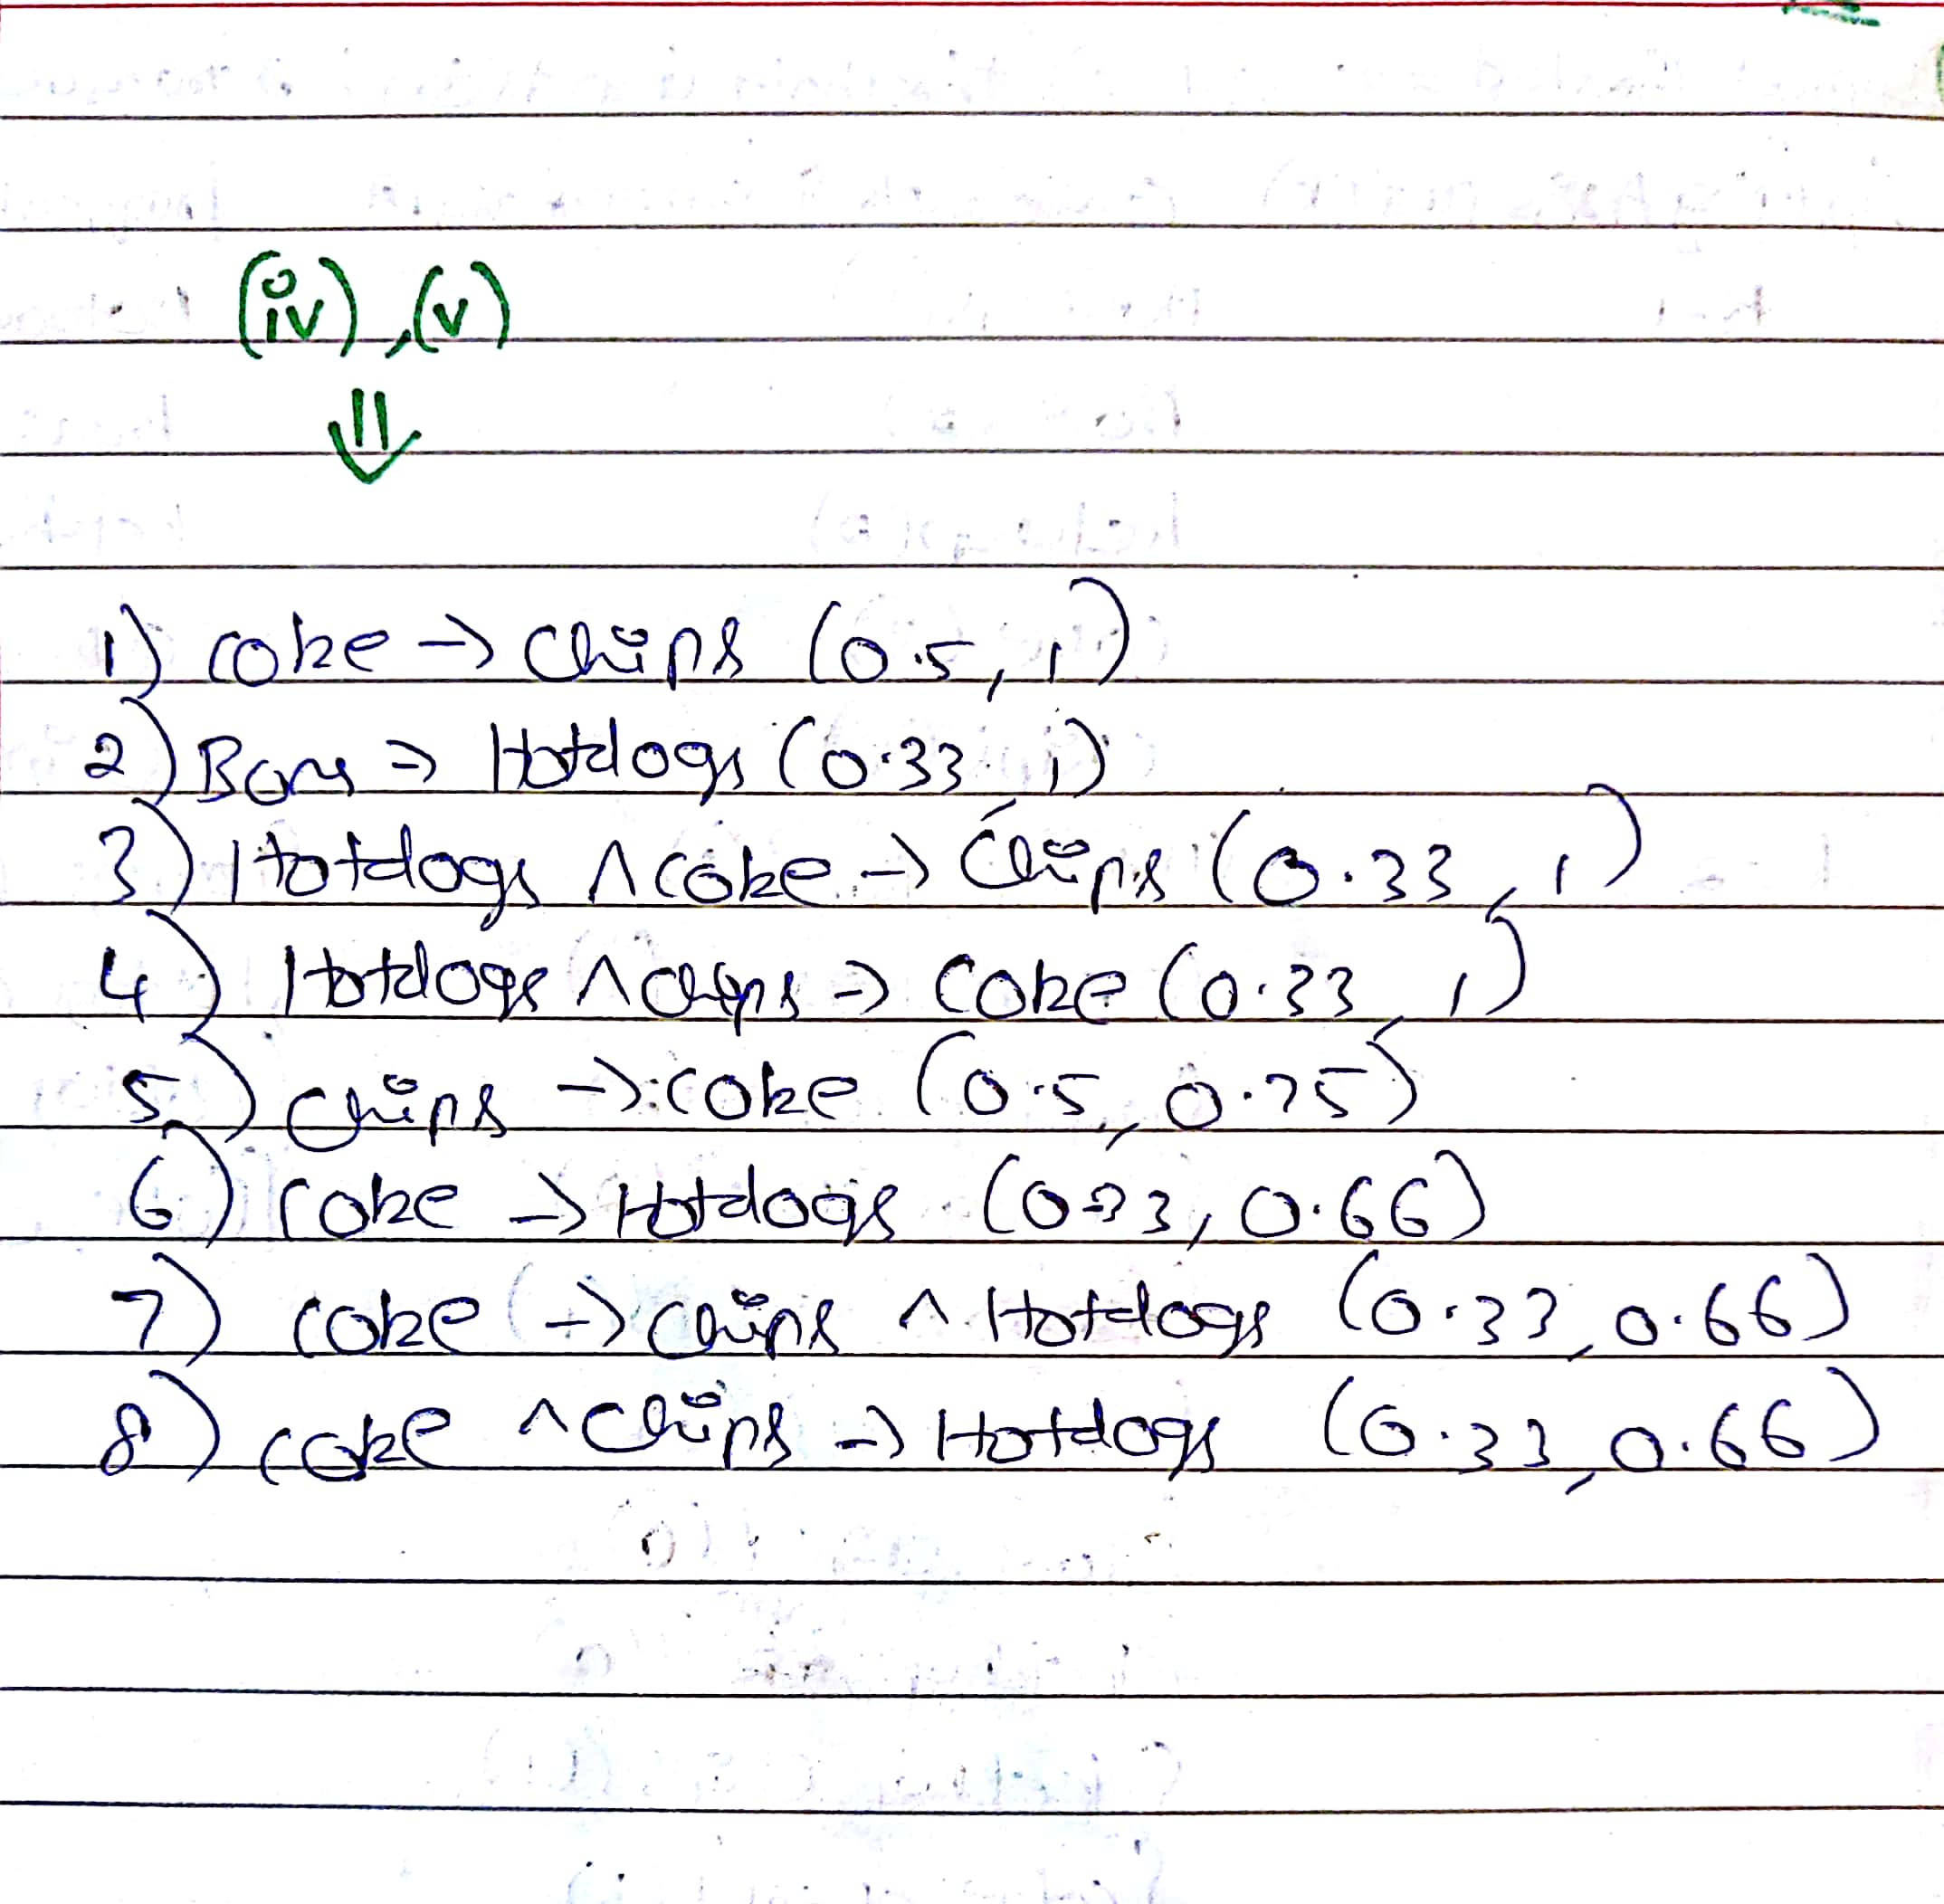 (iv), (v)
⇓
1) Coke → Chips (0.5, 1)
2) Bons → Hotdogs (0.33, 1)
3) Hotdogs ∧ Coke → Chips (0.33, 1)
4) Hotdogs ∧ Chips → Coke (0.33, 1)
5) Chips → Coke (0.5, 0.75)
6) Coke → Hotdogs (0.33, 0.66)
7) Coke → Chips ∧ Hotdogs (0.33, 0.66)
8) Coke ∧ Chips → Hotdogs (0.33, 0.66)